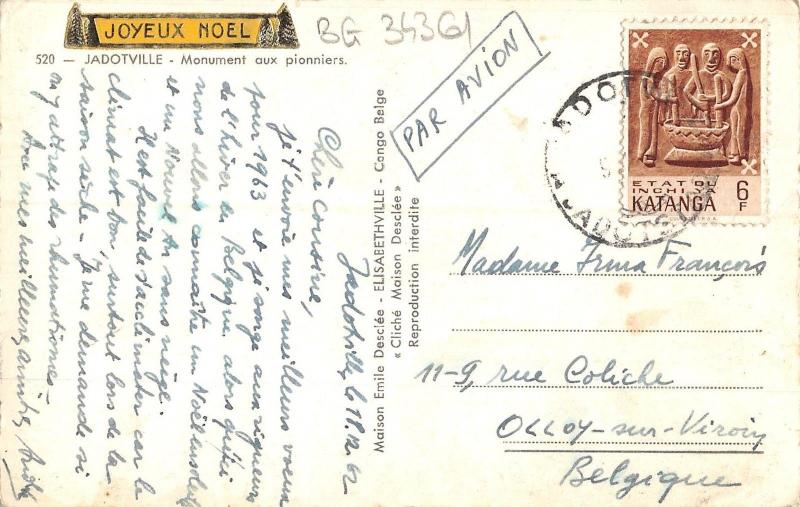 JOYEUX NOEL
520 — JADOTVILLE - Monument aux pionniers.
BG 34361
PAR AVION
JADOTVILLE
ETAT DU
INCHI YA
KATANGA 6
F
Jadotville, le 18.12.62
Chère cousine,
je t'envoie mes meilleurs voeux
pour 1963 et je songe aux rigueurs
de l'hiver en Belgique alors qu'ici
nous allons connaître un Noël ensoleillé
et un Nouvel An sans neige.
Il est facile de s'acclimater car le
climat est bon, surtout lors de la
saison sèche. Je me demande si
m'y attrape des rhumatismes -
mes meilleures amitiés,
Maison Emile Desclée - ELISABETHVILLE - Congo Belge
« Cliché Maison Desclée »
Reproduction interdite
Madame Irma François
11-9, rue Coliche
OLLOY-sur-Viroin
Belgique